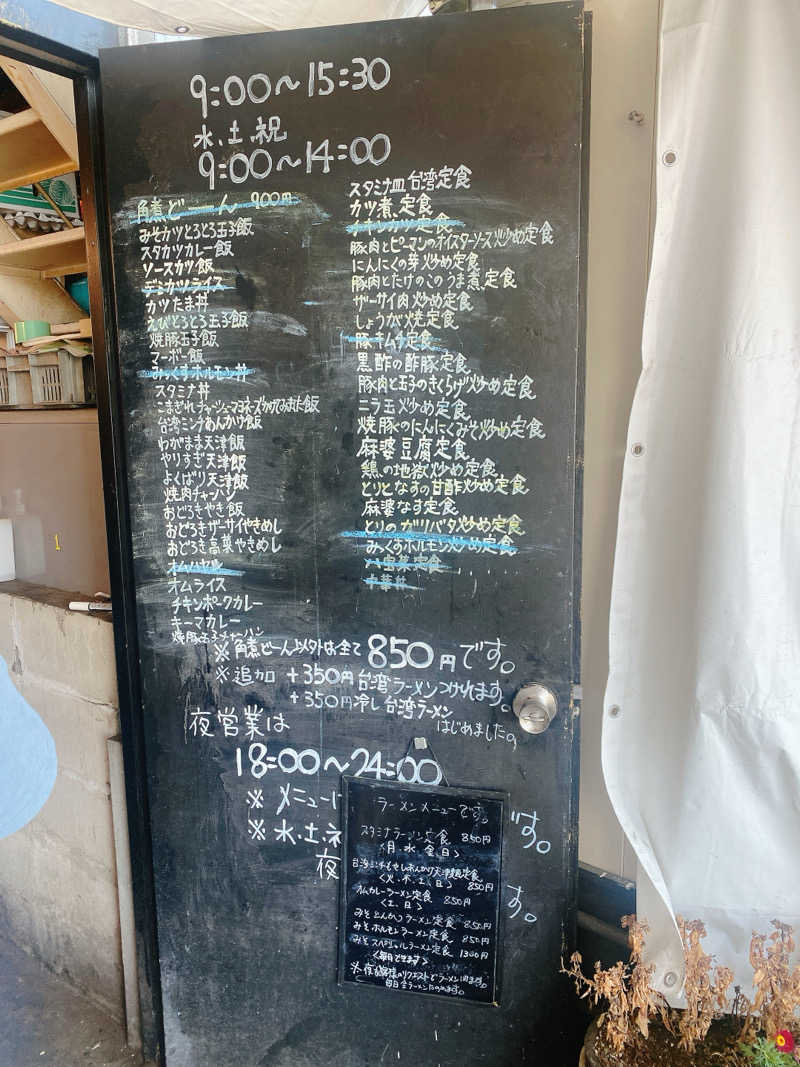 9:00～15:30
水、土、祝
9:00～14:00
角煮どーん 900円
みそカツとろとろ玉子飯
スタカツカレー飯
ソースカツ飯
デミカツライス
カツたま丼
えびとろとろ玉子飯
焼豚玉子飯
マーボー飯
みっくすホルモン丼
スタミナ丼
こまぎれチャーシューマヨネーズかけみまた飯
台湾ミンチあんかけ飯
わがまま天津飯
やりすぎ天津飯
よくばり天津飯
焼肉チャーハン
おどろきやき飯
おどろきザーサイやきめし
おどろき高菜やきめし
オムハヤシ
オムライス
チキンポークカレー
キーマカレー
焼豚玉子チャーハン
スタミナ皿 台湾定食
カツ煮、定食
チキンカツ定食
豚肉とピーマンのオイスターソース炒め定食
にんにくの芽炒め定食
豚肉とたけのこのうま煮定食
ザーサイ肉炒め定食
しょうが焼定食
豚キムチ定食
黒酢の酢豚定食
豚肉と玉子のきくらげ炒め定食
ニラ玉炒め定食
焼豚のにんにくみそ炒め定食
麻婆豆腐定食
鶏の地獄炒め定食
とりとなすの甘酢炒め定食
麻婆なす定食
とりのガリバタ炒め定食
みっくすホルモン炒め定食
八宝菜定食
中華丼
※角煮どーん以外は全て850円です。
※追加 +350円台湾ラーメンつけれます。
+350円冷し台湾ラーメン
はじめました。
夜営業は
18:00～24:00
※メニューは
す。
※水、土、
夜
す。
ラーメンメニューです。
スタミナラーメン定食 850円
〈月、水、金、日〉
〈火、木、土、日〉 850円
オムカレーラーメン定食 850円
〈土、日〉
みそとんかつラーメン定食 850円
みそホルモンラーメン定食 850円
みそスペシャルラーメン定食 1300円
〈毎日できます〉